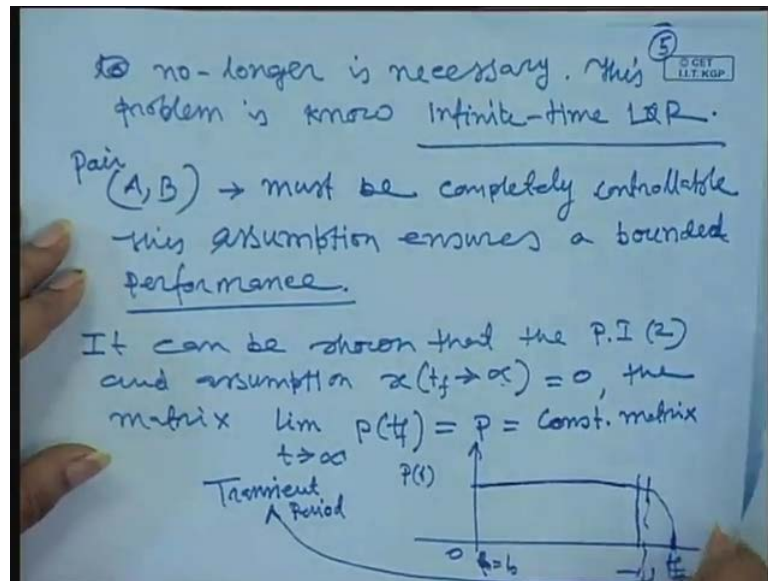 ⑤
© CET
I.I.T. KGP
no-longer is necessary. This
problem is know Infinite-time LQR.
Pair
(A, B) → must be completely controllable
this assumption ensures a bounded
performance.
It can be shown that the P.I (2)
and assumption x(t_f→∞) = 0, the
matrix lim P(t_f) = P = Const. matrix
t→∞
P(t)
Transient
Period
0
t_f